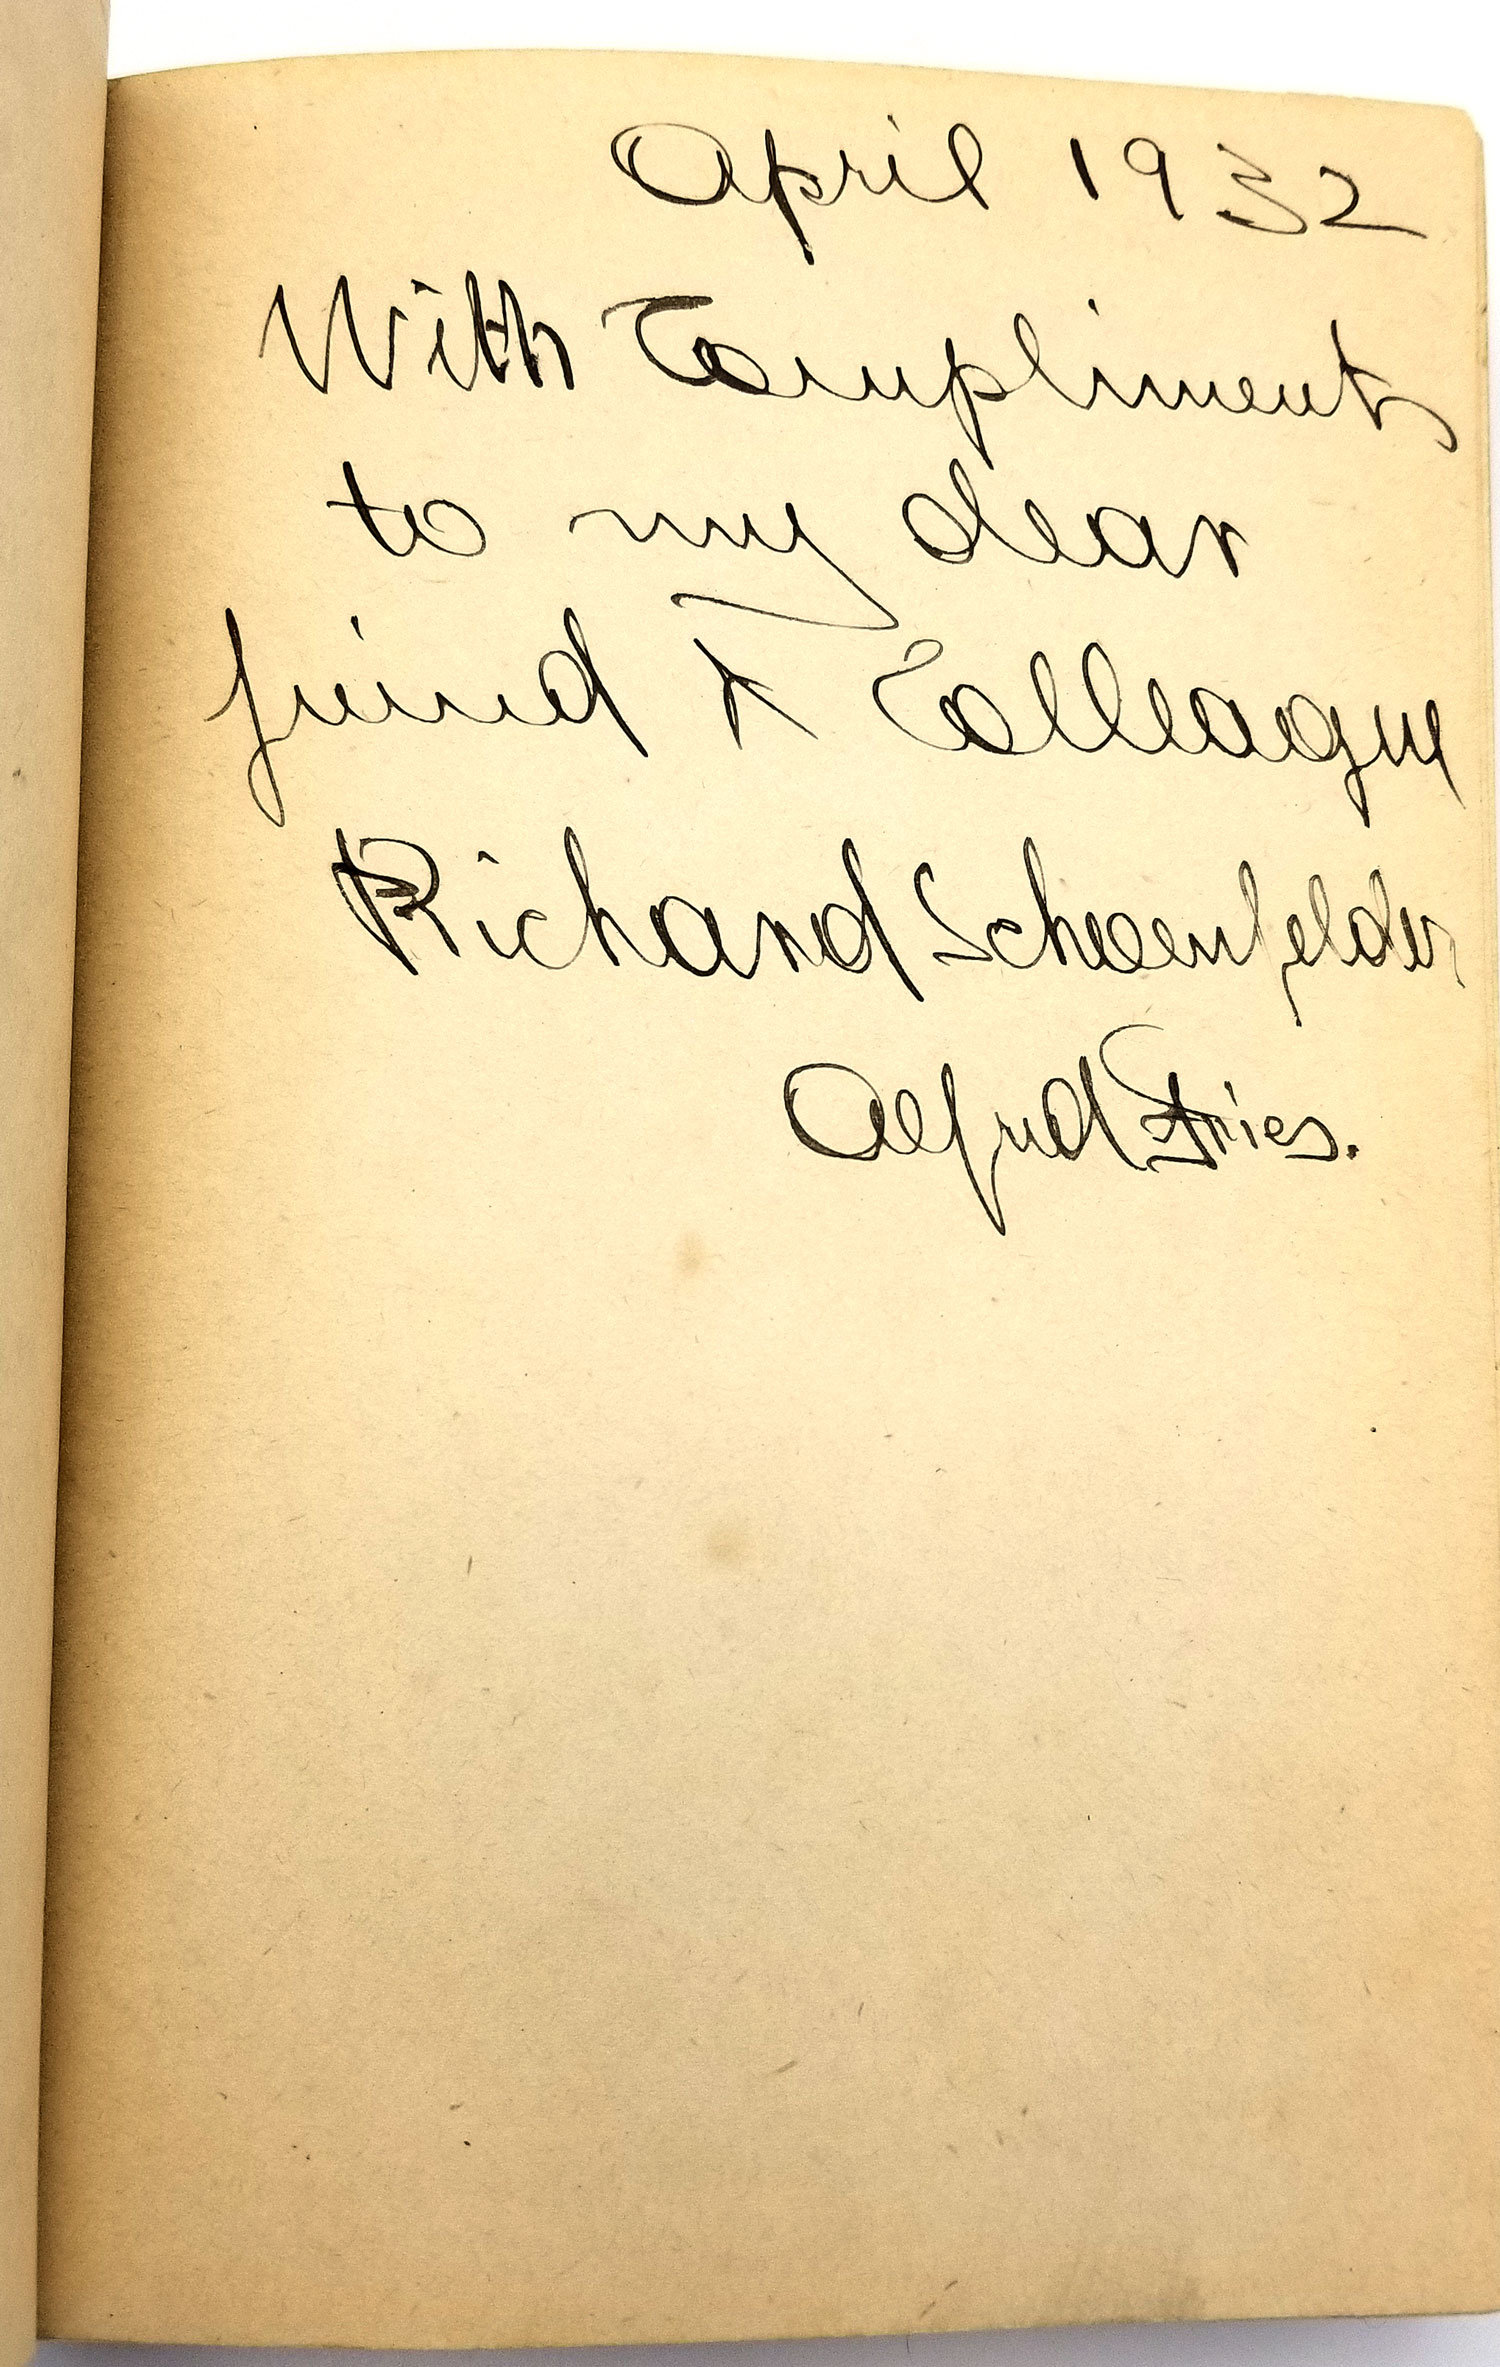 April 1932
With Compliments
to my dear
friend & Colleague
Richard Schoenfelder
Alfred Fries.